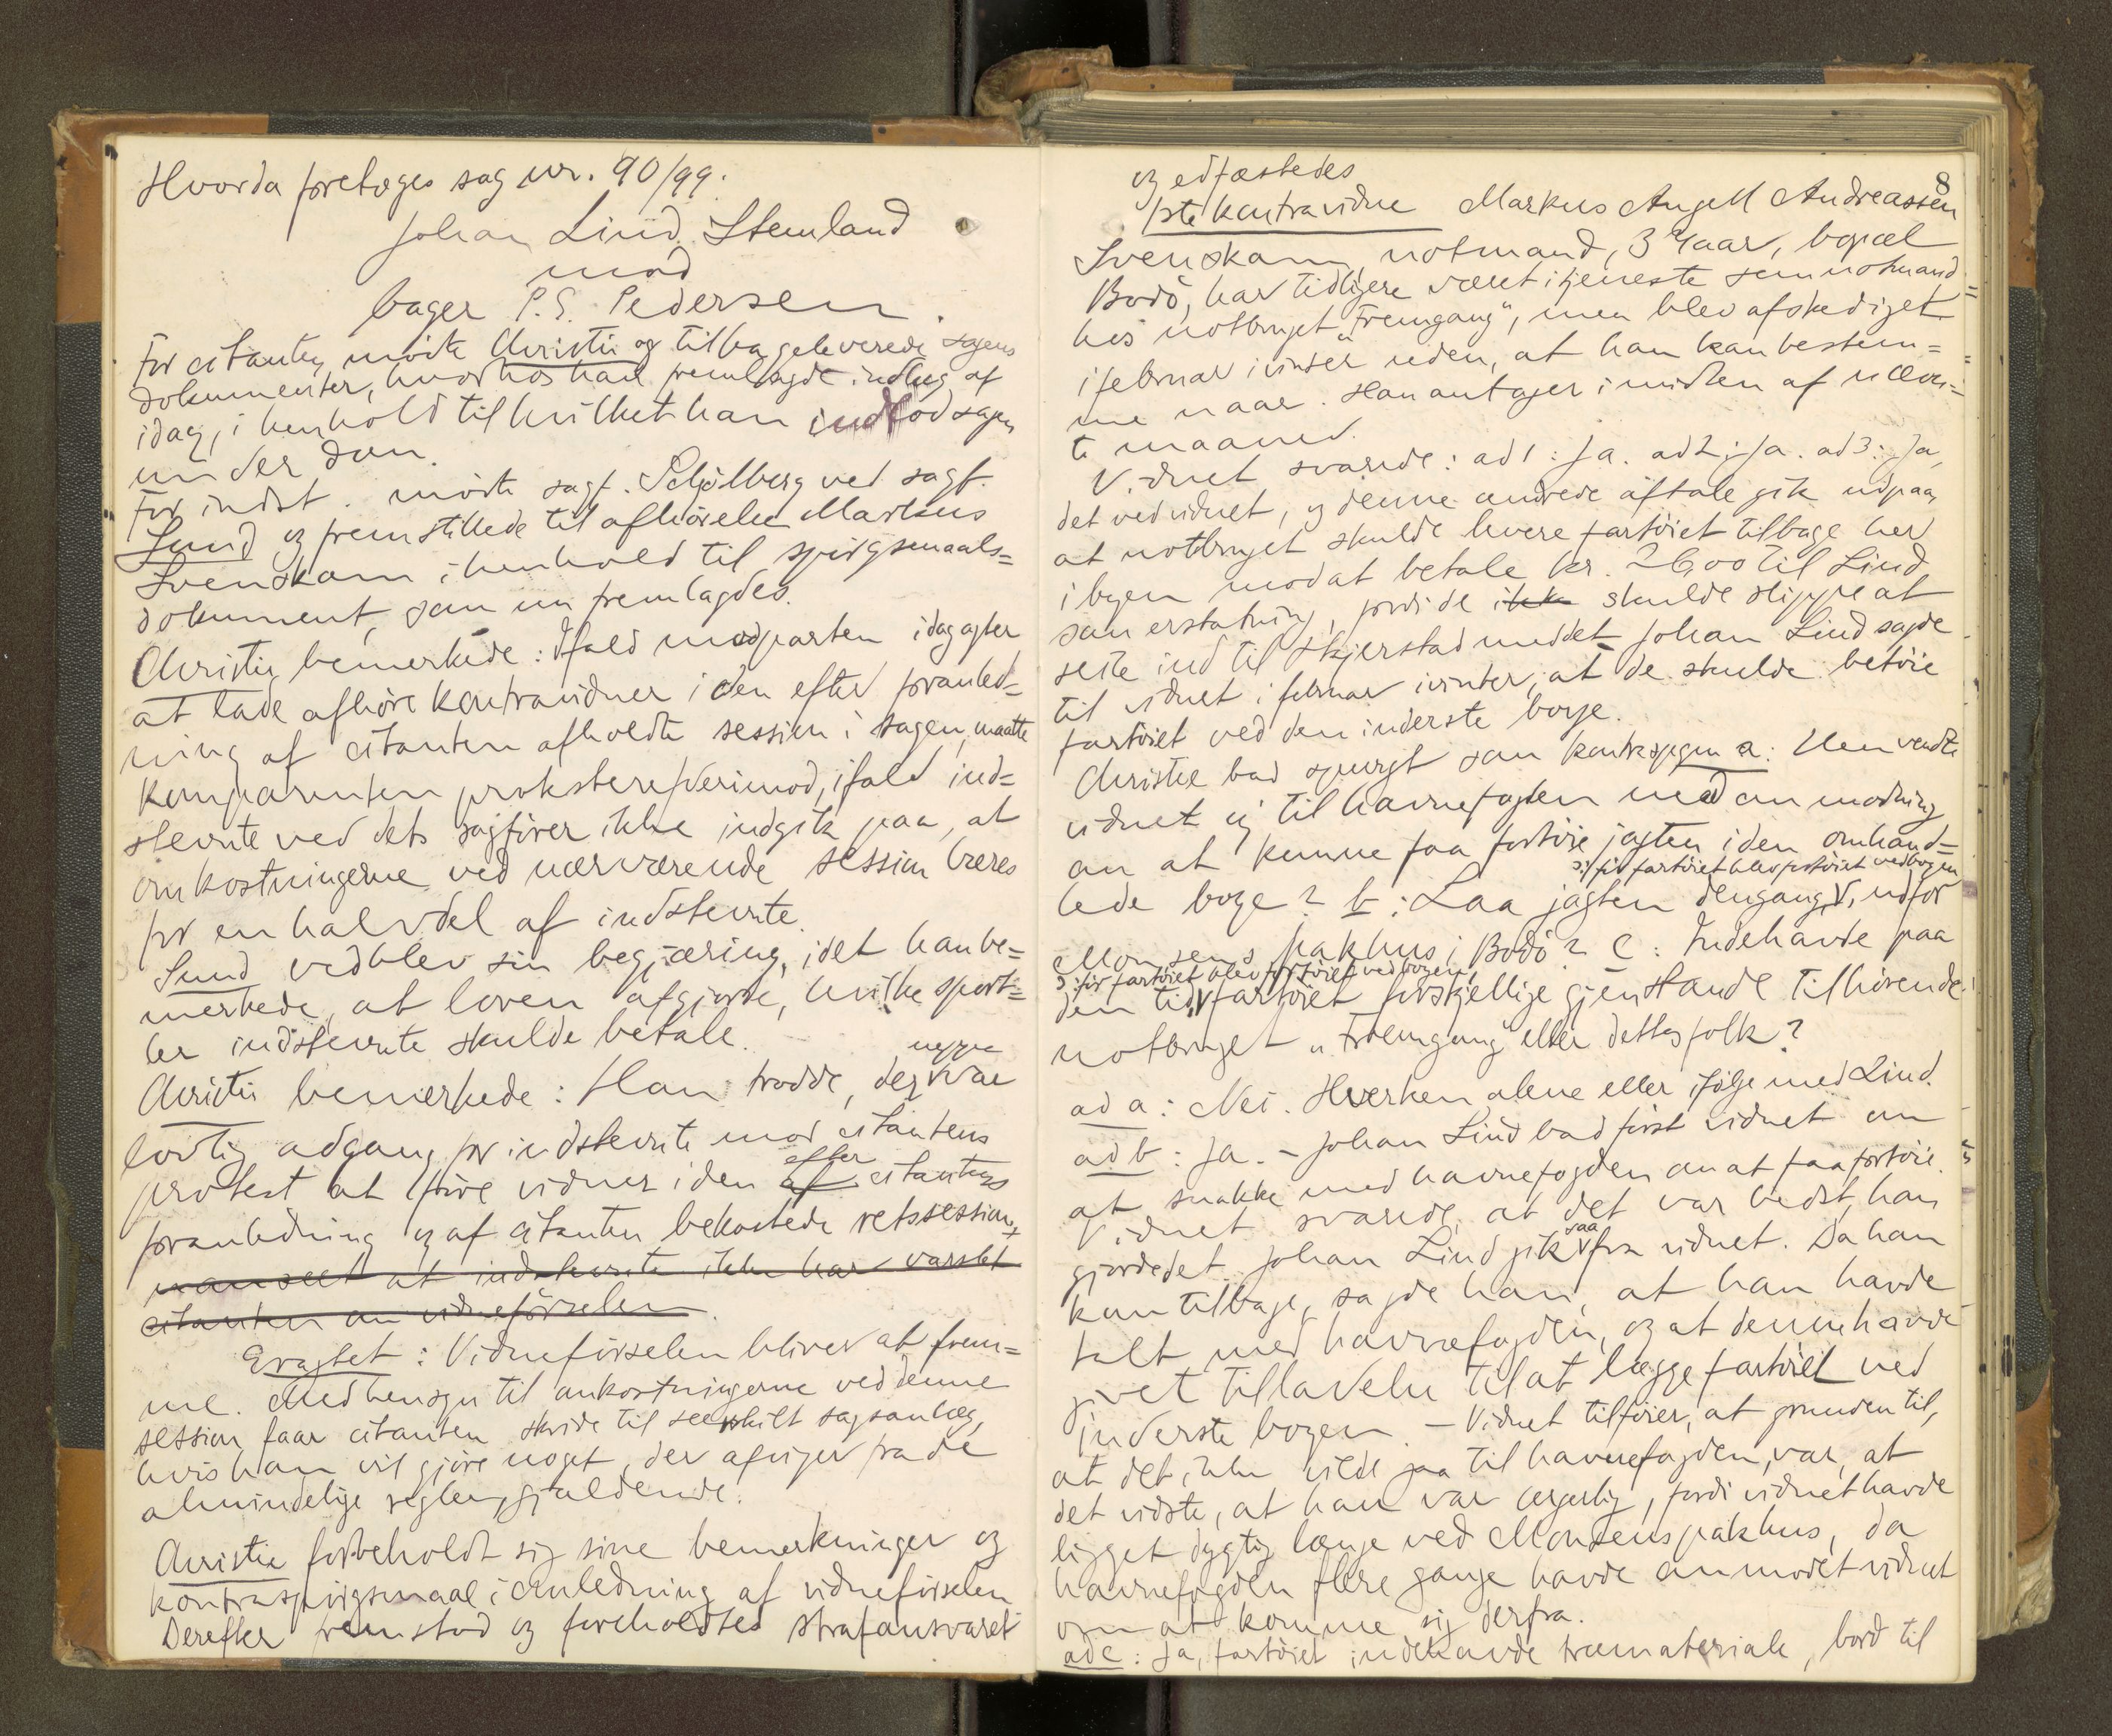 Hvorda foretoges sag nr. 90/99.
Johan Lind Stemland
mod
bager P. E. Pedersen.
For citanten mödte Christie og tilbageleverede sagens
dokumenter, hvorhos han fremlagde indlæg af
idag, i henhold til hvilket han indlod sagen
under dom.
For indst. mödte sagf. Schjölberg ved sagf.
Lund og fremstillede til afhörelse Markus
Svenskam i henhold til spörgsmaals=
dokument, som nu fremlagdes.
Christie bemerkede: Ifald modparten idag agter
at lade afhöre kontravidner i den efter foranled=
ning af citanten afholdte session i sagen, maatte
komparenten protestere derimod, ifald ind=
stevnte ved dets sagförer ikke indgik paa, at
omkostningerne ved nærværende session bæres
for en halvdel af indstevnte.
Lund vedblev sin begjæring, idet han be=
merkede, at loven afgjorde, hvilke sport=
ler indstevnte skulde betale.
Christie bemerkede: Han trodde, der neppe var
lovlig adgang for indstevnte mod citantens
protest at före vidner i den af efter citantens
foranledning og af citanten bekostede retssession,
uanseet at indstevnte ikke har varslet
citanten om vidneförselen.
Eragtet: Vidneförselen bliver at frem=
me. Med hensyn til omkostningerne ved denne
session faar citanten skride til seerskilt sagsanlæg,
hvis han vil gjöre noget, der afviger fra de
almindelige regler, gjældende.
Christie forbeholdt sig sine bemerkninger og
kontraspörgsmaal i anledning af vidneförselen
Derefter fremstod og foreholdtes strafansvaret
8
og edfæstedes
1ste kontravidne Markus Angell Andreassen
Svenskam notmand, 39 aar, bopæl
Bodö, har tidligere været i tjeneste som notmand
hos notbruget "Fremgang", men blev afskediget
i februar ivinter uden, at han kan bestem=
me naar. Han antager i midten af nævn=
te maaned.
Vidnet svarede: ad 1: Ja. ad 2: Ja. ad 3: Ja,
det ved vidnet, og denne ændrede aftale gik ud paa,
at notbruget skulde levere fartöiet tilbage her
i byen mod at betale kr. 26,00 til Lind
som erstatning, fordi de ikke skulde slippe at
seile ind til Skjerstad med det Johan Lind sagde
til vidnet i februar ivinter, at de skulde betöie
fartöiet ved den inderste boye.
Christie bad spurgt som kontraspgm a: Henvendte
vidnet sig til havnefogden med anmodning
om at kunne faa fortöie jagten i den omhand=
lede boye? b: Laa jagten dengang, ɔ: för fartöiet blev fortöiet ved boyen, udfor
Monsens pakhus i Bodö? c: Indehavde paa
den tid, ɔ: för fartöiet blev fortöiet ved boyen, fartöiet forskjellige gjenstande tilhörende
notbruget "Fremgang" eller dettes folk?
ad a: Nei. Hverken alene eller ifölge med Lind.
ad b: Ja. - Johan Lind bad först vidnet om
at snakke med havnefogden om at faa fortöie.
Vidnet svarede, at det var bedst, han
gjorde det. Johan Lind gik saa fra vidnet. Da han
kom tilbage, sagde han, at han havde
talt med havnefogden, og at denne havde
givet tilladelse til at lægge fartöiet ved
inderste boyen. - Vidnet tilföier, at grunden til,
at det ikke vilde gaa til havnefogden, var, at
det vidste, at han var ærgerlig, fordi vidnet havde
ligget dygtig længe ved Monsens pakhus, da
havnefogden flere gange havde anmodet vidnet
om at komme sig derfra.
ad c: Ja, fartöiet indehavde træmateriale, bord til